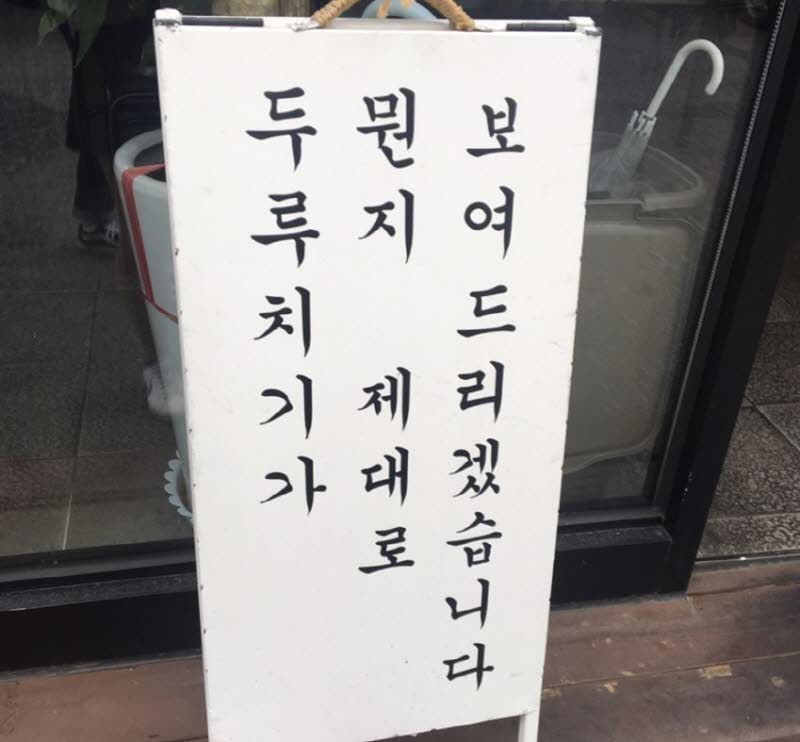 두루치기가
뭔지 제대로
보여드리겠습니다